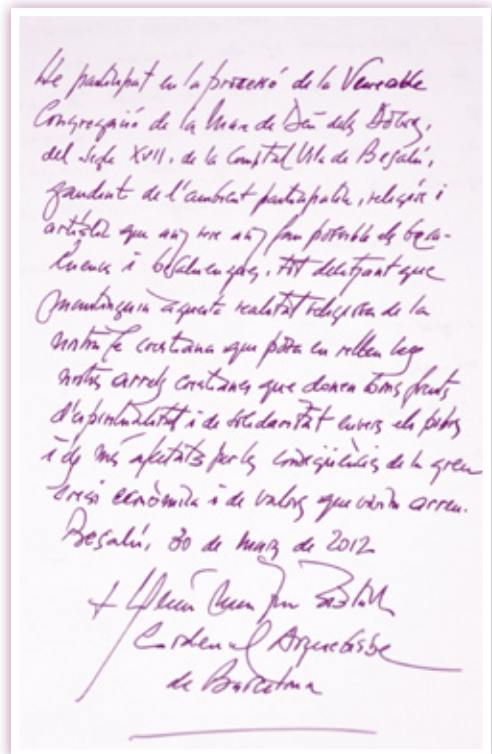 He participat en la processó de la Venerable
Congregació de la Mare de Déu dels Dolors,
del segle XVII, de la Comptal Vila de Besalú,
gaudint de l'ambient participatiu, religiós i
artístic que any rere any fan possible els besa-
luencs i besaluenques, tot desitjant que
mantinguin aquesta realitat religiosa de la
nostra fe cristiana que posa en relleu les
nostres arrels cristianes que donen bons fruits
d'espiritualitat i de solidaritat envers els pobres
i els més afectats per les conseqüències de la greu
crisi econòmica i de valors que vivim arreu.
Besalú, 30 de març de 2012
+ Lluís
Cardenal Arquebisbe
de Barcelona